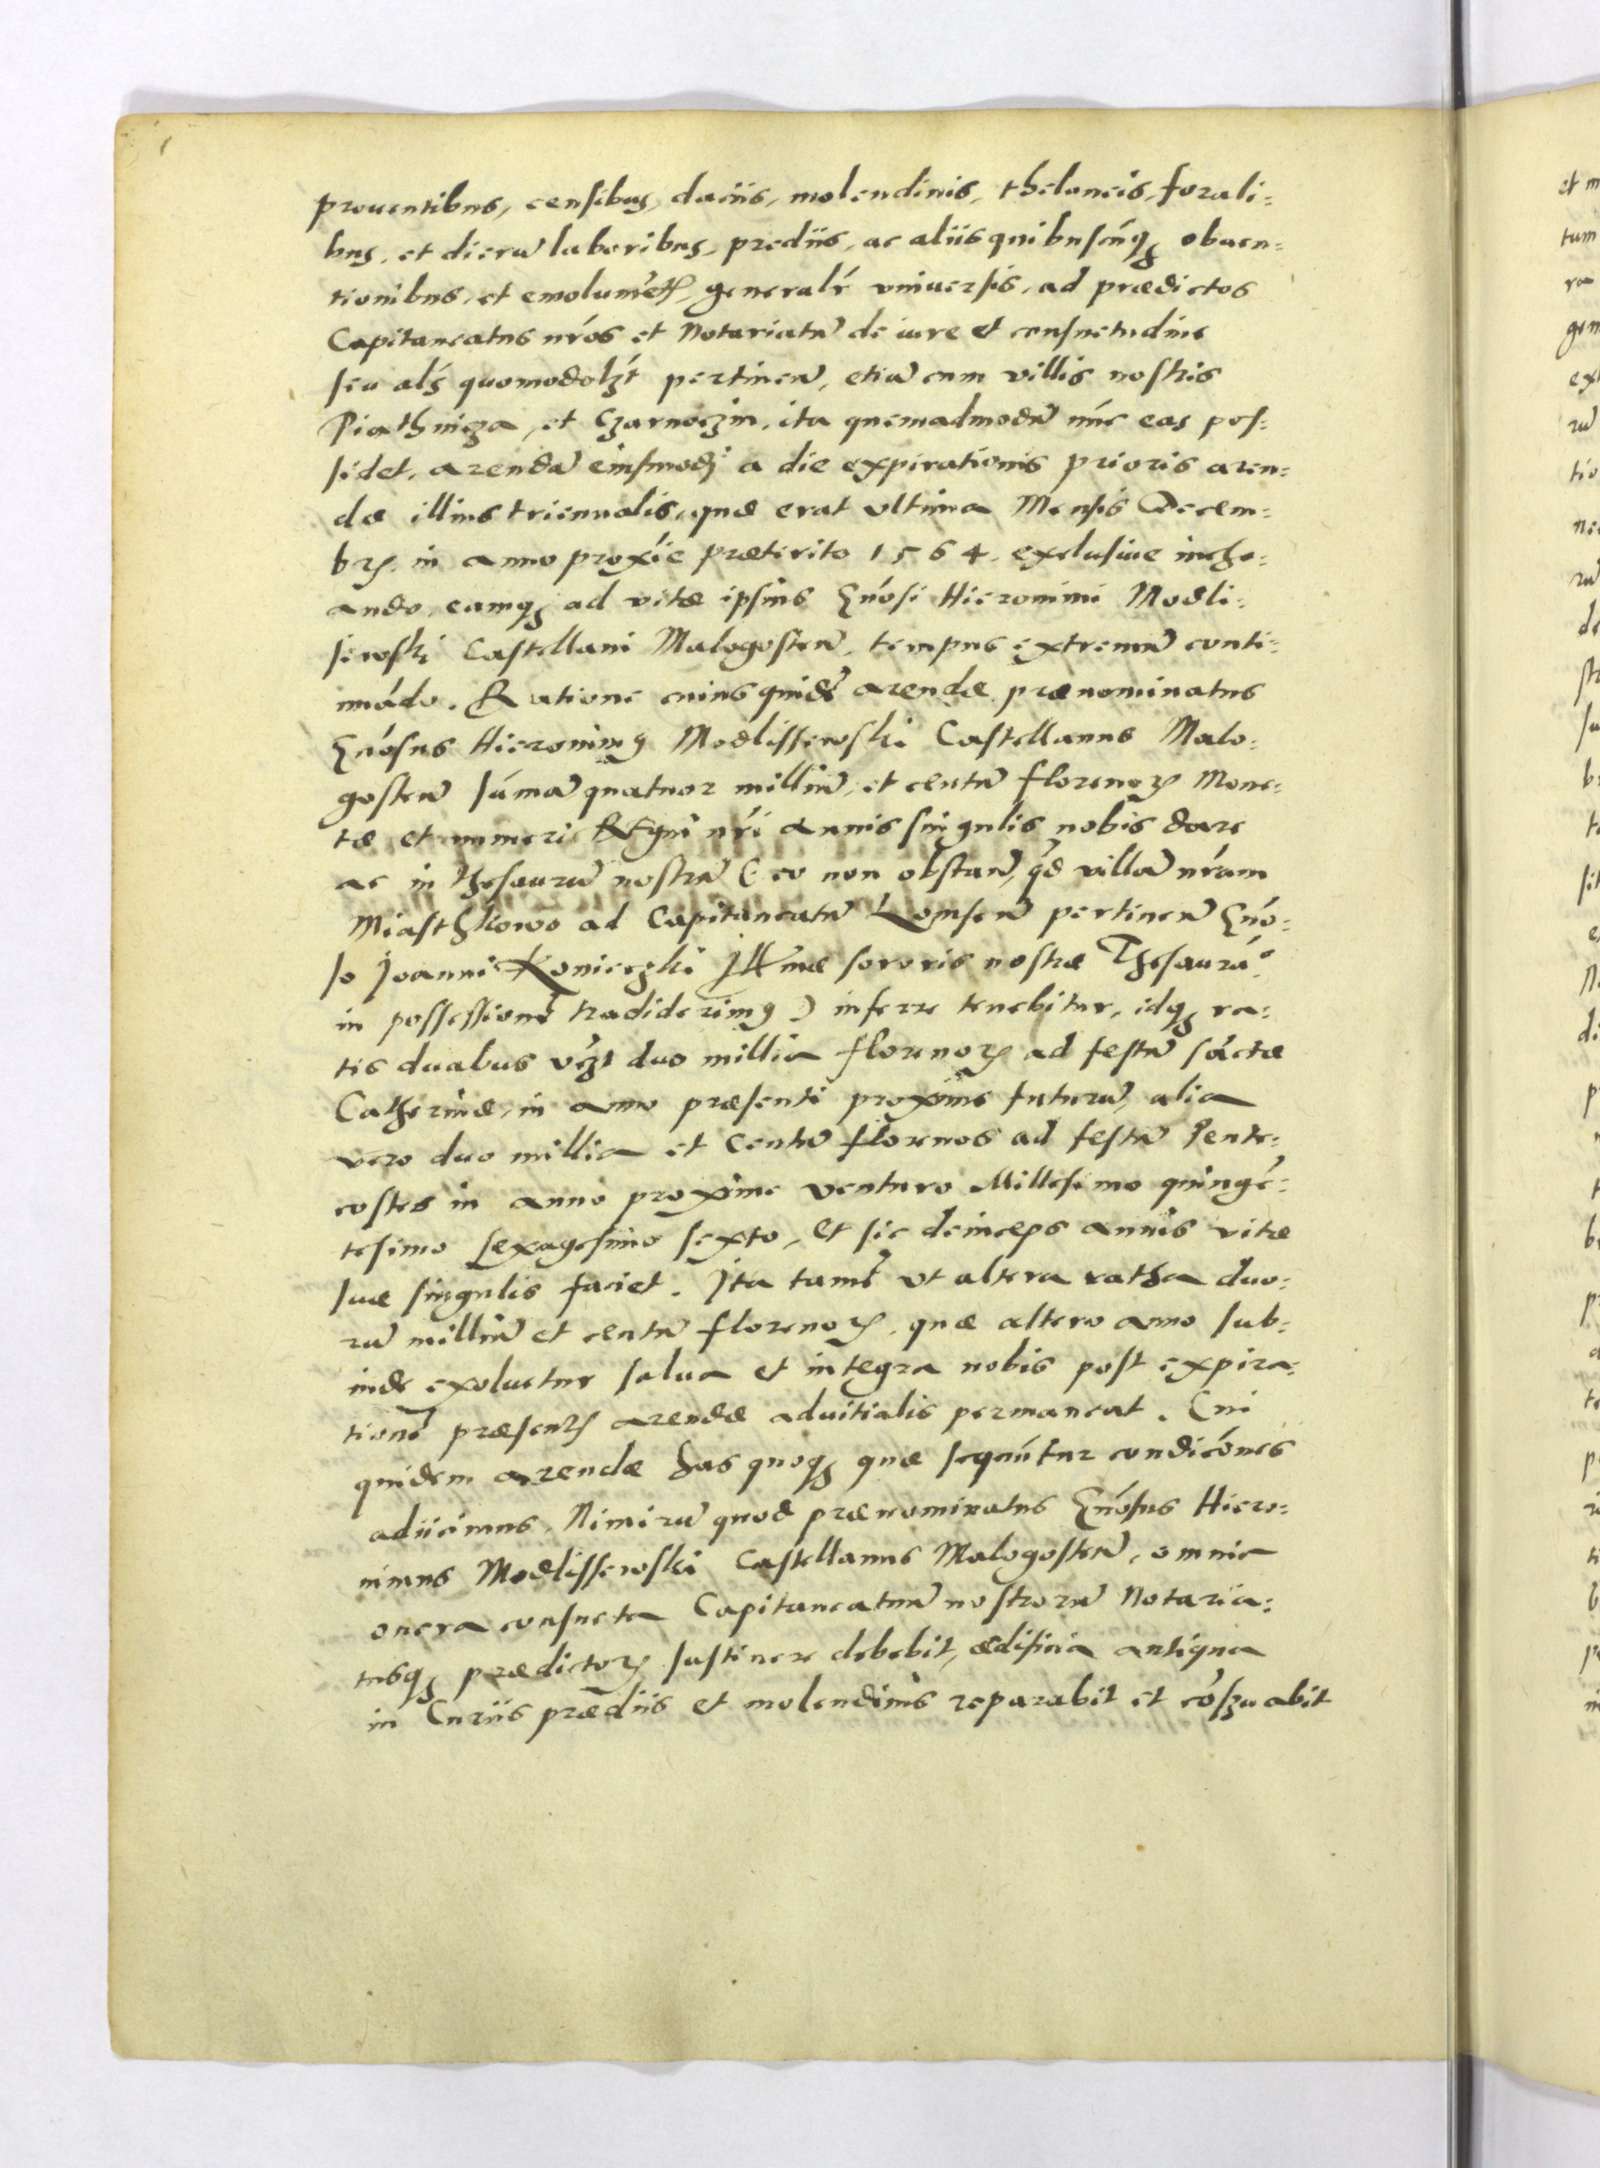 prouentibus, censibus, daciis, molendinis, theloneis, forali=
bus, et dierũ laboribus, prediis, ac aliis quibuscũq₃ obuen=
tionibus, et emolumẽtis, generalr̃ vniuersis, ad prædictos
Capitaneatus nr̃os et Notariatũ de iure et consuetudine
seu als quomodolz̃t pertineñ, etiã cum villis nostris
Piathnicza, et Czarnoczin, ita quemadmodũ nũc eas pos=
sidet, arendã eiusmodi a die expirationis prioris aren=
dæ illius triennalis, quæ erat vltima Mensis Decem=
bris in anno proxĩe præterito 1564. exclusiue incho=
ando, eamq₃ ad vitæ ipsius Gñosi Hieronimi Modli=
sewski Castellani Malogosteñ, tempus extremũ conti=
nuãdo. Ratione cuius quidẽ arendæ prænominatus
Gñosus Hieronimus Modlissewski Castellanus Malo=
gosteñ sũmã quatuor milliũ, et centũ florenoꝝ Mone=
tæ et numeri Regni nr̃i annis singulis nobis dare
ac in thesaurũ nostrũ (: eo non obstañ, qd̃ villã nr̃am
Miasthkowo ad Capitaneatũ Lomseñ pertineñ Gño=
so Joanni Konieczki Jllmæ sororis nostræ Thesaurão
in possessionẽ tradiderimus) inferre tenebitur, idq₃ ra=
tis duabus vz̃t duo millia florenoꝝ ad festũ sãctæ
Catherinæ, in anno præsenti proxime futurũ, alia
vero duo millia et Centũ florenos ad festũ Pente=
costes in anno proxime venturo Millesimo quingẽ=
tesimo sexagesimo sexto, et sic deinceps annis vitæ
suæ singulis faciet. Jta tamẽ vt altera ratha duo=
rũ milliũ et centũ florenoꝝ, quæ altero anno sub=
inde exoluetur salua et integra nobis post expira=
tionẽ præsentis arendæ aduitialis permaneat. Cui
quidem arendæ has quoq₃ quæ sequũtur condicões
adiicimus. Nimirũ quod prænominatus Gñosus Hiero=
nimus Modlissewski Castellanus Malogosteñ, omnia
onera consueta Capitaneatuũ nostrorũ Notaria=
tusq₃ prædictoꝝ sustinere debebit, ædificia antiqua
in Curiis prædiis et molendinis reparabit et cõseruabit